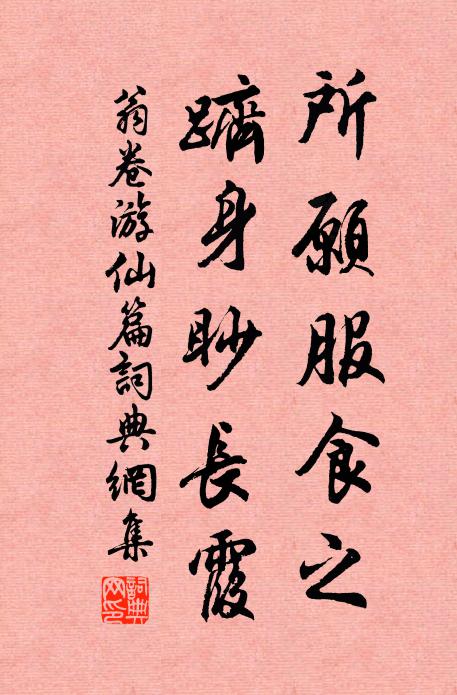 所願服食之
躋身眇長霞
翁卷游仙篇詞典網集
詞典網印